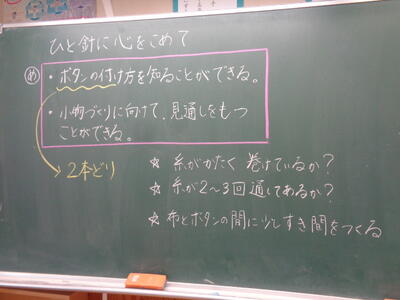 ひと針に心をこめて
め ・ボタンの付け方を知ることができる。
・小物づくりに向けて、見通しをもつ
ことができる。
2本どり
☆ 糸がかたく巻けているか?
☆ 糸が2~3回通してあるか?
☆ 布とボタンの間に少しすき間をつくる